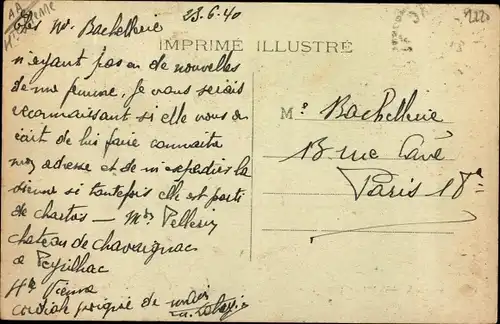 23.6.40
Mr Bachellerie
IMPRIMÉ ILLUSTRÉ
n'ayant pas eu de nouvelles
de ma femme, je vous serais
reconnaissant si elle vous
écrit de lui faire connaitre
mon adresse et de m'expédier la
sienne si toutefois elle est partie
de
Pellerin
chateau de Chavaignac
à Peyrilhac
Hte Vienne
cordiale poignée de
Mr Bachellerie
13 rue Cavé
Paris 18e